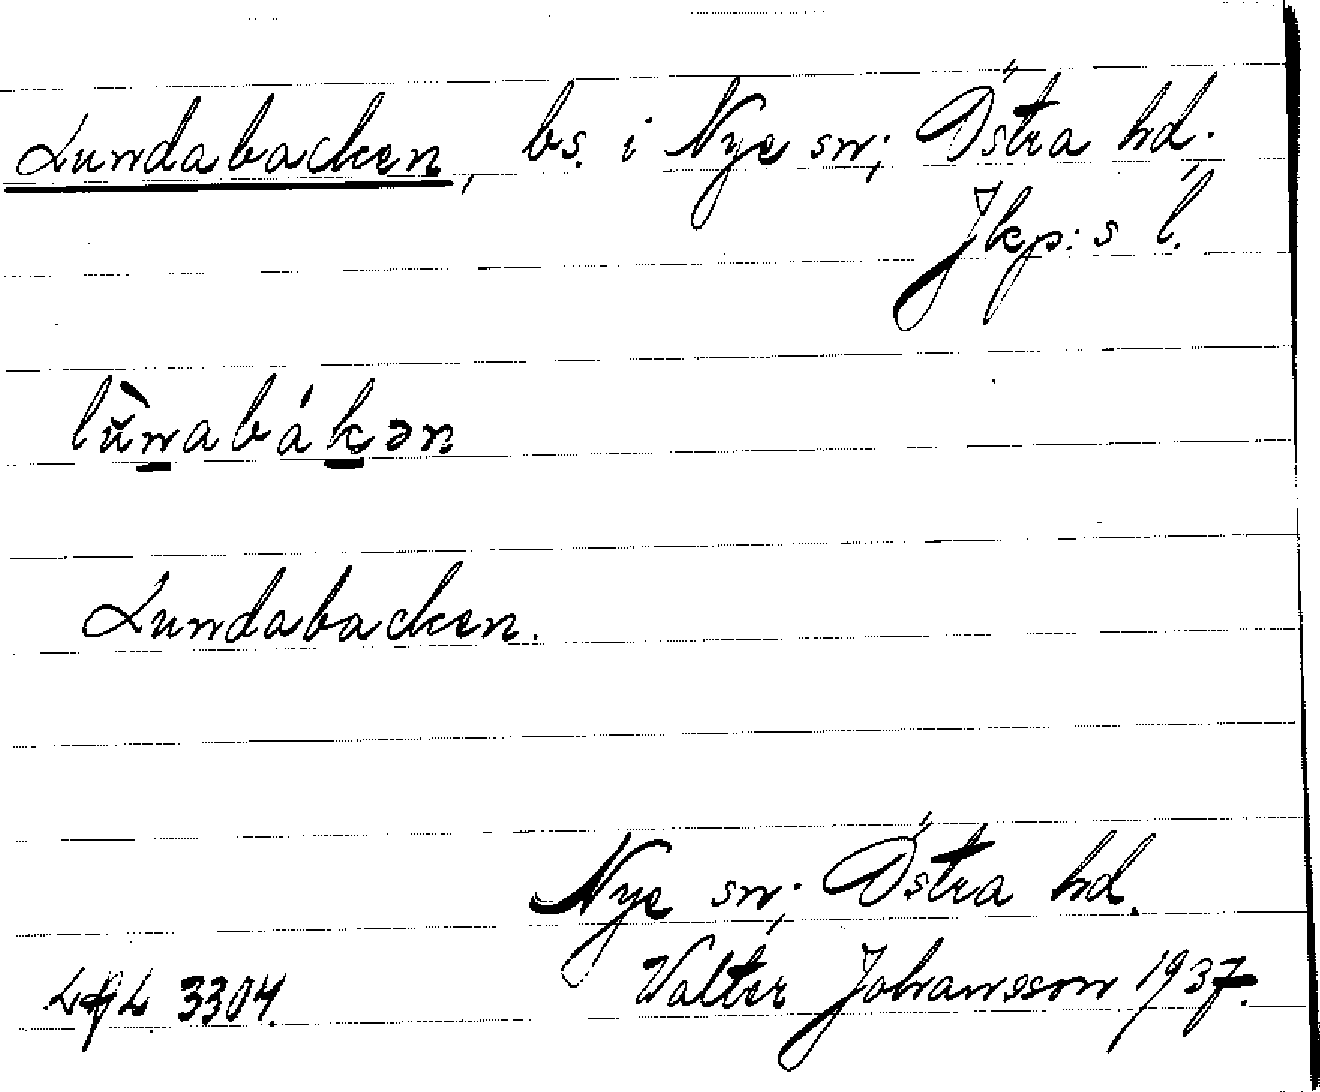 Lundabacken, bs. i Nye sn; Östra hd.
Jkp:s l.
lùnabákən
Lundabacken.
Nye sn; Östra hd.
3304. Valter Johansson 1937.